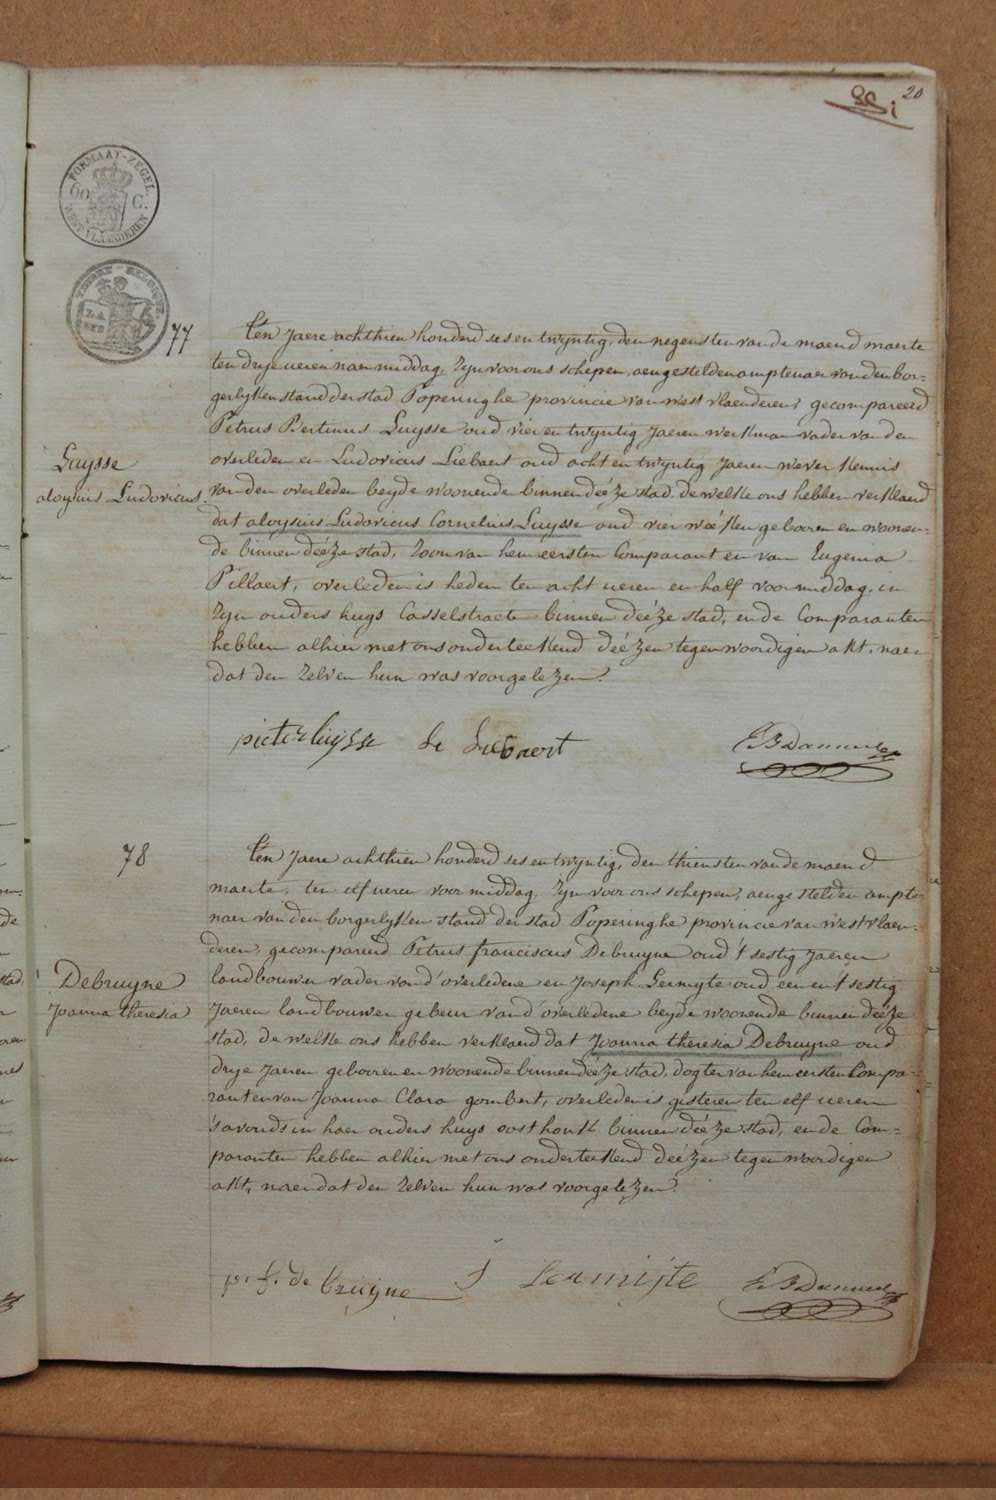 20
FORMAAT-ZEGEL.
60 C.
WEST-VLAANDEREN
77
Ten Jaere achthien honderd ses en twyntig, den negensten van de maend maerte
ten drye ueren naermiddag, Zyn voor ons schepen, aengestelden amptenaer van den bor=
gerlyken stand der stad Poperinghe provincie van west vlaenderen, gecompareerd
Petrus Bertinus Luysse oud vier en twyntig Jaeren werkman vader van den
overleden en Ludovicus Liebaert oud acht en twyntig Jaeren wever kennis
van den overleden beyde woonende binnen déézestad, de welke ons hebben verklaerd
dat aloysius Ludovicus Cornelius Luysse oud vier wééken gebooren en woonen=
de binnen déézestad, Zoon van hem eersten Comparant en van Eugenia
Pillaert, overleden is heden ten acht ueren en half voormiddag, in
Zyn ouders huys Casselstraete binnen déézestad, en de Comparanten
hebben alhier met ons onderteekend déézen tegenwoordigen akt, naer
dat den Zelven hun was voorgelezen.
Luysse
aloysius Ludovicus
pieter luysse
Liebaert
78
Ten Jaere achthien honderd ses en twyntig, den thiensten van de maend
maerte, ten elf ueren voormiddag, Zyn voor ons schepen, aengestelden ampte
naer van den borgerlyken stand der stad Poperinghe provincie van west vlaen=
deren, gecompareerd Petrus franciscus Debruyne oud 't sestig Jaeren
landbouwer vader vand' overledene en Joseph Germyte oud een en 't sestig
Jaeren landbouwer gebeur vand' overledene beyde woonende binnen dééze
stad, de welke ons hebben verklaerd dat Joanna theresia Debruyne oud
drye Jaeren gebooren en woonende binnen déézestad, dogter van hem eersten Compa=
rant en van Joanna Clara gombert, overleden is gisteren ten elf ueren
's avonds in haer ouders huys oosthouk binnen déézestad, en de Com=
paranten hebben alhier met ons onderteekend déézen tegenwoordigen
akt, naer dat den Zelven hun was voorgelezen.
Debruyne
Joanna theresia
p. f. de bruyne